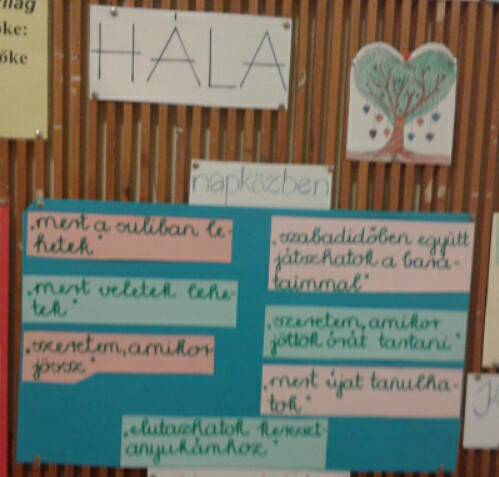 őke:
őke
HÁLA
napközben
„mert a suliban le-
hetek"
„mert veletek lehe-
tek"
„szeretem, amikor
jössz"
„szabadidőben együtt
játszhatok a bará-
taimmal"
„szeretem, amikor
jöttök órát tartani"
„mert újat tanulha-
tok"
„elutazhatok kereszt-
anyukámhoz"